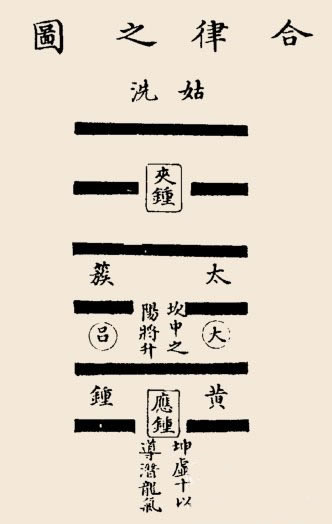 合律之圖
姑洗
夾鍾
太簇
坎中之
陽將升
大呂
黃鍾
應鍾
坤虛十以
導潛龍氣